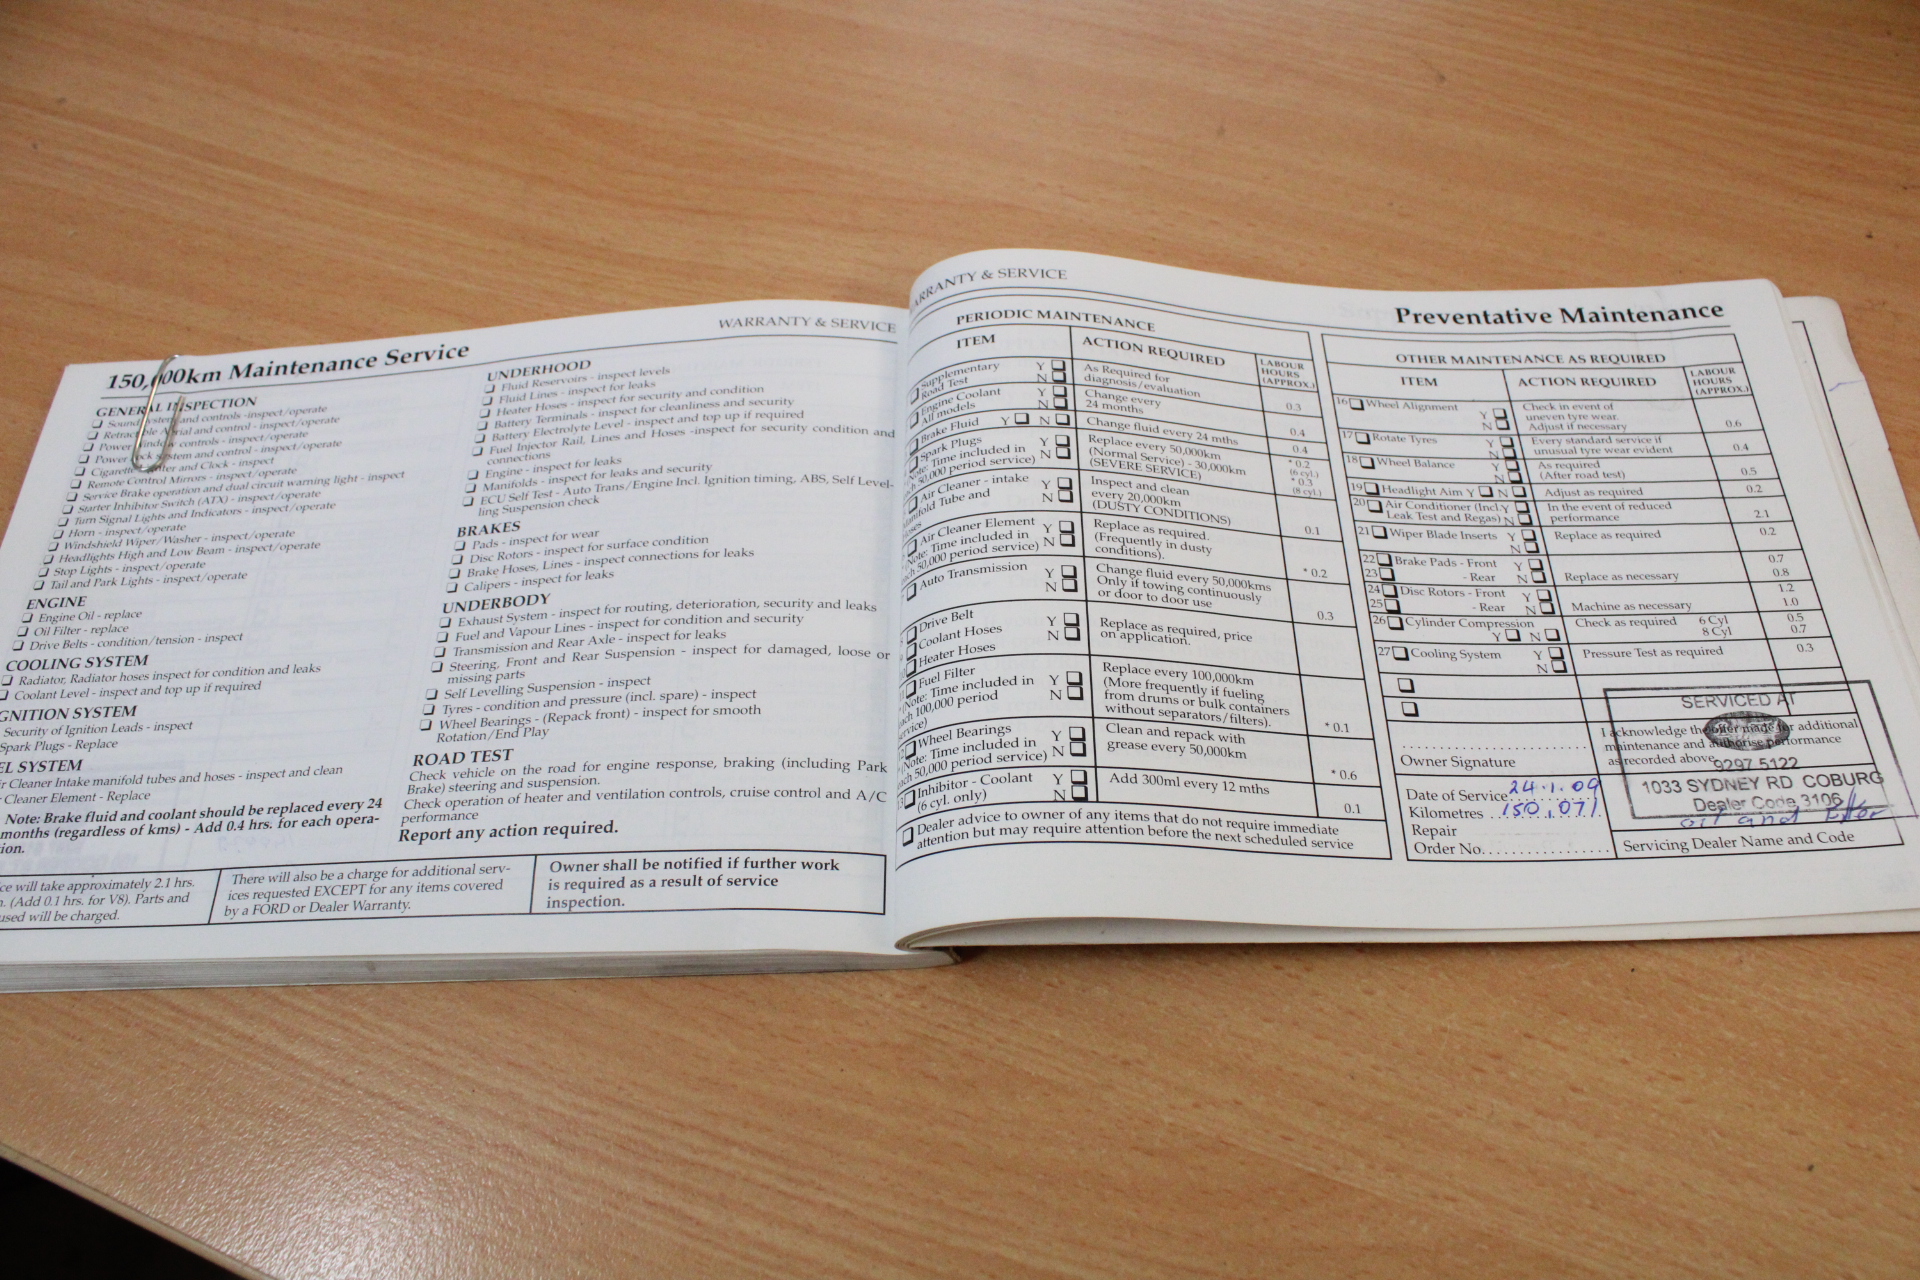 WARRANTY & SERVICE
150,000km Maintenance Service
GENERAL INSPECTION
Sound System and controls -inspect/operate
Retractable Aerial and control - inspect/operate
Power Window controls - inspect/operate
Power Lock system and control - inspect/operate
Cigarette Lighter and Clock - inspect
Remote Control Mirrors - inspect/operate
Service Brake operation and dual circuit warning light - inspect
Starter Inhibitor Switch (ATX) - inspect/operate
Turn Signal Lights and Indicators - inspect/operate
Horn - inspect/operate
Windshield Wiper/Washer - inspect/operate
Headlights High and Low Beam - inspect/operate
Stop Lights - inspect/operate
Tail and Park Lights - inspect/operate
ENGINE
Engine Oil - replace
Oil Filter - replace
Drive Belts - condition/tension - inspect
COOLING SYSTEM
Radiator, Radiator hoses inspect for condition and leaks
Coolant Level - inspect and top up if required
GNITION SYSTEM
Security of Ignition Leads - inspect
Spark Plugs - Replace
EL SYSTEM
r Cleaner Intake manifold tubes and hoses - inspect and clean
Cleaner Element - Replace
Note: Brake fluid and coolant should be replaced every 24
months (regardless of kms) - Add 0.4 hrs. for each opera-
ion.
UNDERHOOD
Fluid Reservoirs - inspect levels
Fluid Lines - inspect for leaks
Heater Hoses - inspect for security and condition
Battery Terminals - inspect for cleanliness and security
Battery Electrolyte Level - inspect and top up if required
Fuel Injector Rail, Lines and Hoses -inspect for security condition and
connections
Engine - inspect for leaks
Manifolds - inspect for leaks and security
ECU Self Test - Auto Trans/Engine Incl. Ignition timing, ABS, Self Level-
ling Suspension check
BRAKES
Pads - inspect for wear
Disc Rotors - inspect for surface condition
Brake Hoses, Lines - inspect connections for leaks
Calipers - inspect for leaks
UNDERBODY
Exhaust System - inspect for routing, deterioration, security and leaks
Fuel and Vapour Lines - inspect for condition and security
Transmission and Rear Axle - inspect for leaks
Steering, Front and Rear Suspension - inspect for damaged, loose or
missing parts
Self Levelling Suspension - inspect
Tyres - condition and pressure (incl. spare) - inspect
Wheel Bearings - (Repack front) - inspect for smooth
Rotation/End Play
ROAD TEST
Check vehicle on the road for engine response, braking (including Park
Brake) steering and suspension.
Check operation of heater and ventilation controls, cruise control and A/C
performance
Report any action required.
ce will take approximately 2.1 hrs.
. (Add 0.1 hrs. for V8). Parts and
used will be charged.
There will also be a charge for additional serv-
ices requested EXCEPT for any items covered
by a FORD or Dealer Warranty.
Owner shall be notified if further work
is required as a result of service
inspection.
ARRANTY & SERVICE
Preventative Maintenance
PERIODIC MAINTENANCE
ITEM ACTION REQUIRED LABOUR HOURS (APPROX.)
Supplementary Y As Required for
Road Test N diagnosis/evaluation 0.3
Engine Coolant Y Change every
All models N 24 months 0.4
Brake Fluid Y N Change fluid every 24 mths 0.4
Spark Plugs Y Replace every 50,000km * 0.2
Note: Time included in N (Normal Service) - 30,000km (6 cyl.)
50,000 period service) (SEVERE SERVICE) * 0.3 (8 cyl.)
Air Cleaner - intake Y Inspect and clean
Manifold Tube and N every 20,000km
Hoses (DUSTY CONDITIONS) 0.1
Air Cleaner Element Y Replace as required.
(Note: Time included in N (Frequently in dusty
each 50,000 period service) conditions). * 0.2
Auto Transmission Y Change fluid every 50,000kms
N Only if towing continuously
or door to door use 0.3
Drive Belt
Coolant Hoses Y Replace as required, price
Heater Hoses N on application.
Fuel Filter Y Replace every 100,000km
(Note: Time included in N (More frequently if fueling
each 100,000 period from drums or bulk containers
service) without separators/filters). * 0.1
Wheel Bearings Y Clean and repack with
(Note: Time included in N grease every 50,000km
each 50,000 period service) * 0.6
Inhibitor - Coolant Y Add 300ml every 12 mths
(6 cyl. only) N 0.1
Dealer advice to owner of any items that do not require immediate
attention but may require attention before the next scheduled service
OTHER MAINTENANCE AS REQUIRED
ITEM ACTION REQUIRED LABOUR HOURS (APPROX.)
16 Wheel Alignment Y N Check in event of
uneven tyre wear.
Adjust if necessary 0.6
17 Rotate Tyres Y N Every standard service if
unusual tyre wear evident 0.4
18 Wheel Balance Y N As required
(After road test) 0.5
19 Headlight Aim Y N Adjust as required 0.2
20 Air Conditioner (Incl. Y In the event of reduced
Leak Test and Regas) N performance 2.1
21 Wiper Blade Inserts Y N Replace as required 0.2
22 Brake Pads - Front Y 0.7
23 - Rear N Replace as necessary 0.8
24 Disc Rotors - Front Y 1.2
25 - Rear N Machine as necessary 1.0
26 Cylinder Compression Check as required 6 Cyl 0.5
Y N 8 Cyl 0.7
27 Cooling System Y N Pressure Test as required 0.3
SERVICED AT
I acknowledge the offer made for additional
maintenance and authorise performance
as recorded above.
9297 5122
1033 SYDNEY RD COBURG
Dealer Code 3106
oil and filter
Owner Signature
Date of Service 24.1.09
Kilometres 150,071
Repair
Order No.
Servicing Dealer Name and Code